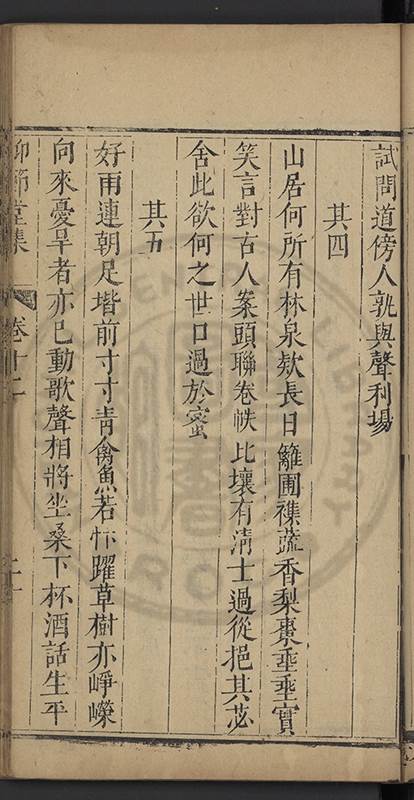 試問道傍人孰與聲利場
其四
山居何所有林泉欸長日籬圃襍蔬香梨棗垂垂實
笑言對古人案頭聯卷帙比壤有淸士過從挹其苾
舍此欲何之世口過於蜜
其五
好雨連朝足堦前寸寸靑禽魚若忭躍草樹亦崢嶸
向來憂旱者亦已動歌聲相將坐桑下杯酒話生平
仰節堂集
卷十二